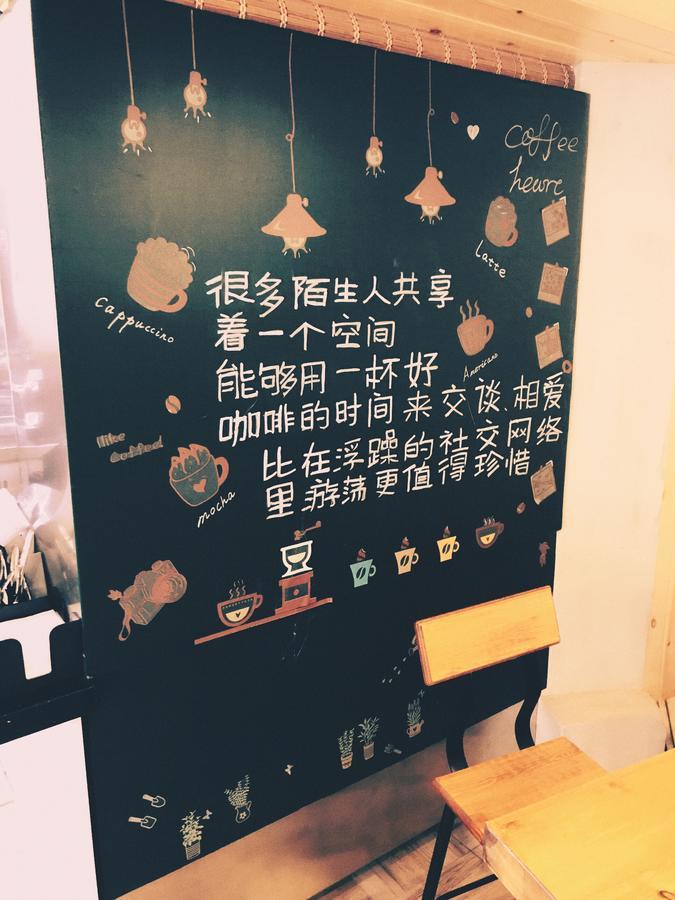 coffee
hewre
Latte
cappuccino
Americano
很多陌生人共享
着一个空间
能够用一杯好
咖啡的时间来交谈、相爱
比在浮躁的社交网络
里游荡更值得珍惜
mocha